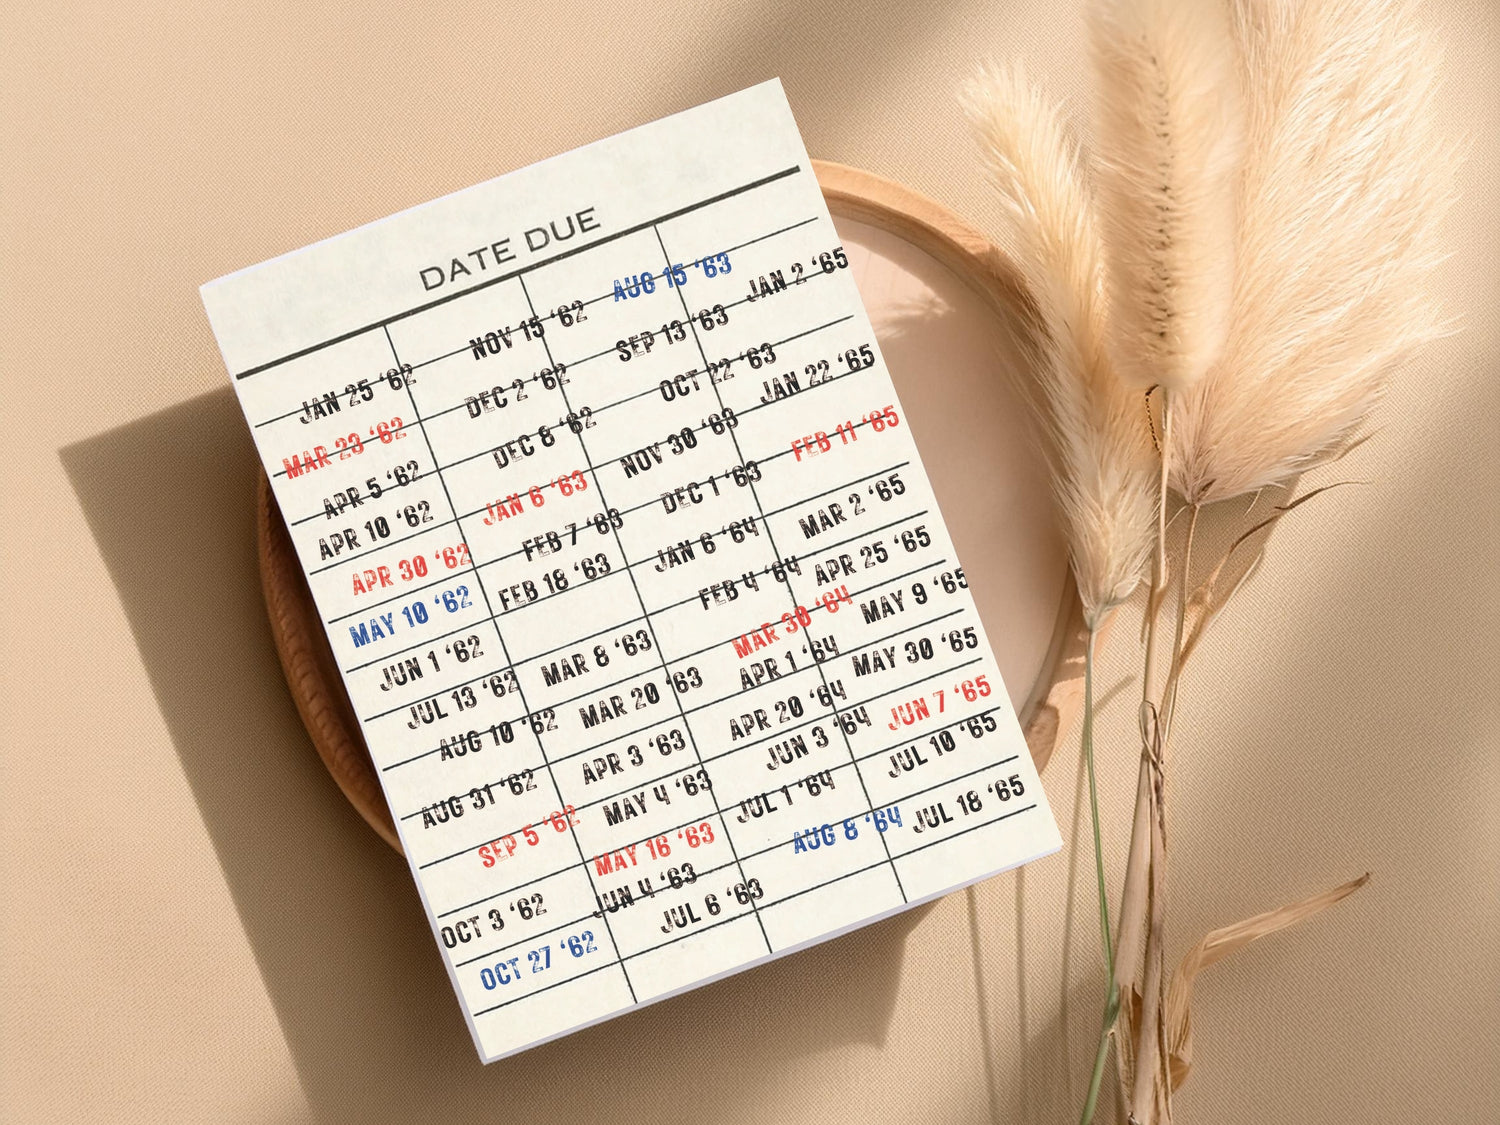 DATE DUE
JAN 25 '62
MAR 23 '62
APR 5 '62
APR 10 '62
APR 30 '62
MAY 10 '62
JUN 1 '62
JUL 13 '62
AUG 10 '62
AUG 31 '62
SEP 5 '62
OCT 3 '62
OCT 27 '62
NOV 15 '62
DEC 2 '62
DEC 8 '62
JAN 6 '63
FEB 7 '63
FEB 18 '63
MAR 8 '63
MAR 20 '63
APR 3 '63
MAY 4 '63
MAY 16 '63
JUN 4 '63
JUL 6 '63
AUG 15 '63
SEP 13 '63
OCT 22 '63
NOV 30 '63
DEC 1 '63
JAN 6 '64
FEB 4 '64
MAR 30 '64
APR 1 '64
APR 20 '64
JUN 3 '64
JUL 1 '64
AUG 8 '64
JAN 2 '65
JAN 22 '65
FEB 11 '65
MAR 2 '65
APR 25 '65
MAY 9 '65
MAY 30 '65
JUN 7 '65
JUL 10 '65
JUL 18 '65